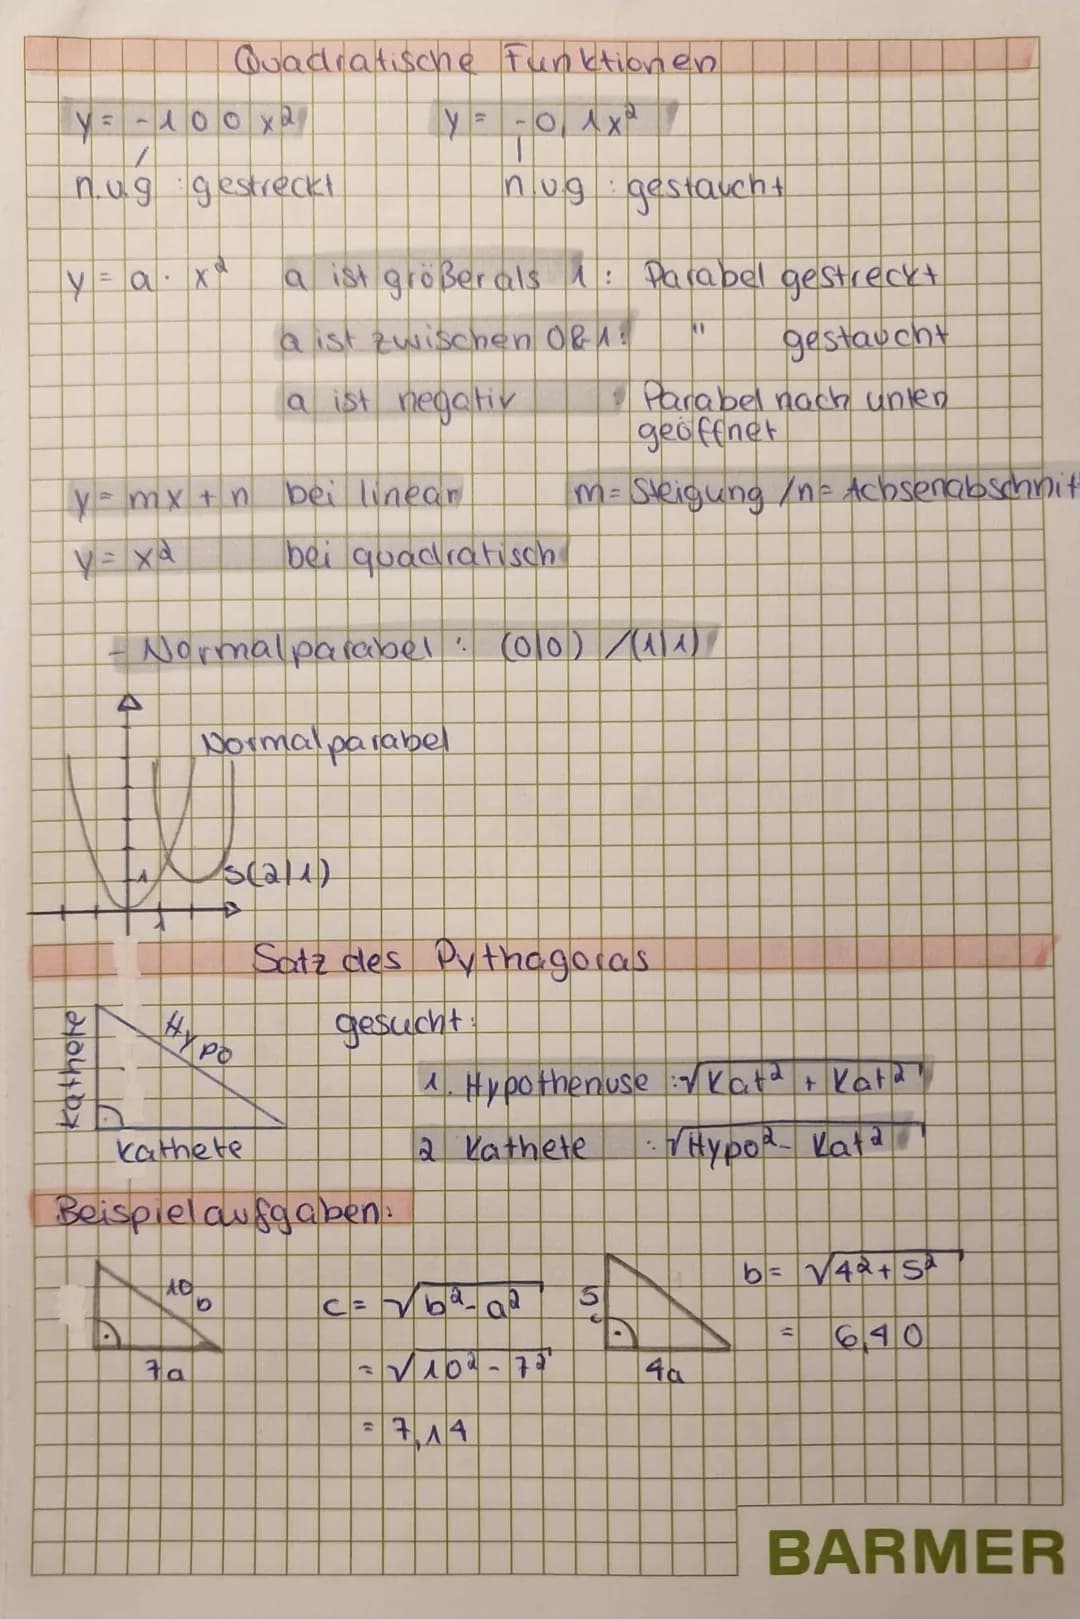 Quadratische Funktionen
y = -100x² y = -0,1x²
n.u.g : gestreckt n.u.g : gestaucht
y = a · x² a ist größer als 1 : Parabel gestreckt
a ist zwischen 0&1: " gestaucht
a ist negativ : Parabel nach unten
geöffnet
y = mx + n bei linear m = Steigung / n = Achsenabschnitt
y = x² bei quadratisch
- Normalparabel : (0|0) / (1|1)
Normalparabel
1
S(2|1)
1
Satz des Pythagoras
Kathete
Hypo
Kathete
gesucht:
1. Hypothenuse : √Kat² + Kat²
2 Kathete : √Hypo² - Kat²
Beispielaufgaben:
10 b
7a
c = √b² - a²
= √10² - 7²
= 7,14
5
c
4a
b = √4² + 5²
= 6,40
BARMER